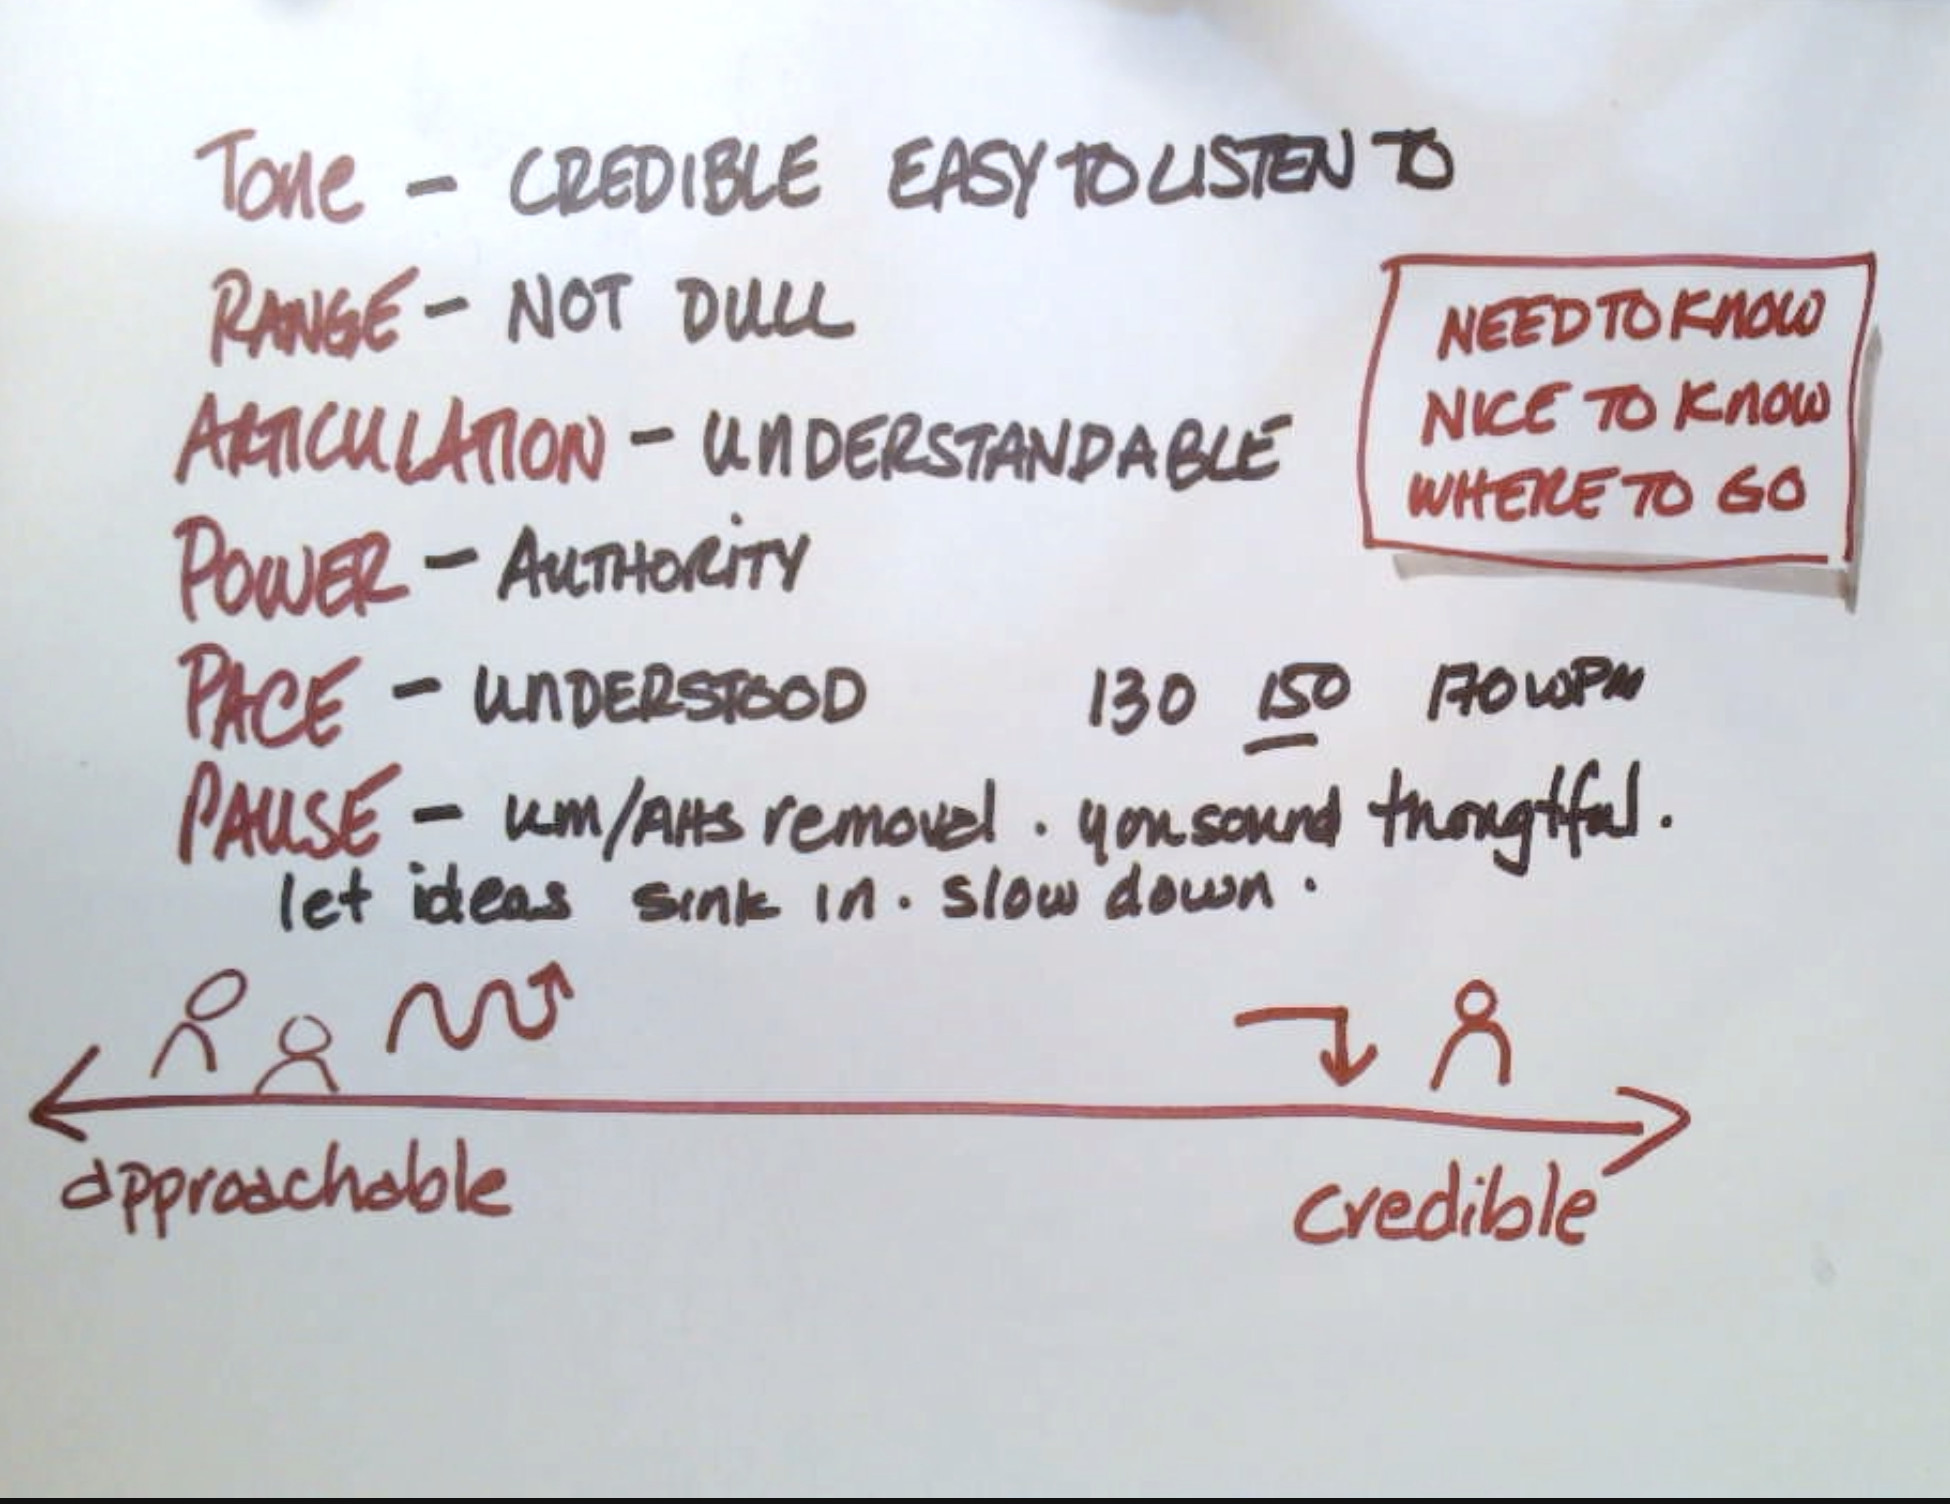 Tone - CREDIBLE EASY TO LISTEN TO
RANGE - NOT DULL
ARTICULATION - UNDERSTANDABLE
POWER - AUTHORITY
PACE - UNDERSTOOD 130 150 170 WPM
PAUSE - um/AHS removal . you sound thougtful.
let ideas sink in . slow down .
NEED TO KNOW
NICE TO KNOW
WHERE TO GO
approachable
credible